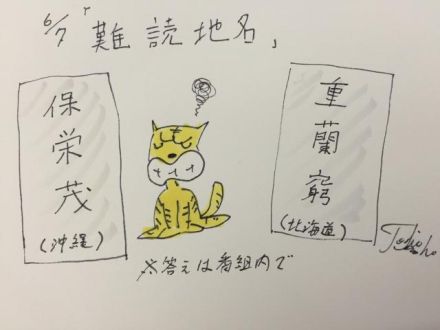 6/7「難読地名」
保栄茂
(沖縄)
重蘭窮
(北海道)
※答えは番組内で